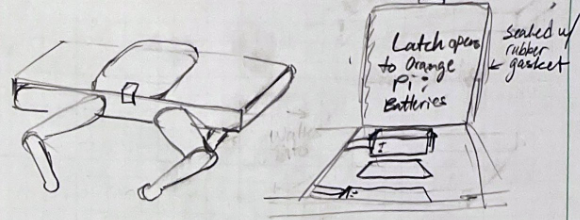 Latch opens
to Orange
Pi &
Batteries
sealed w/
rubber
gasket